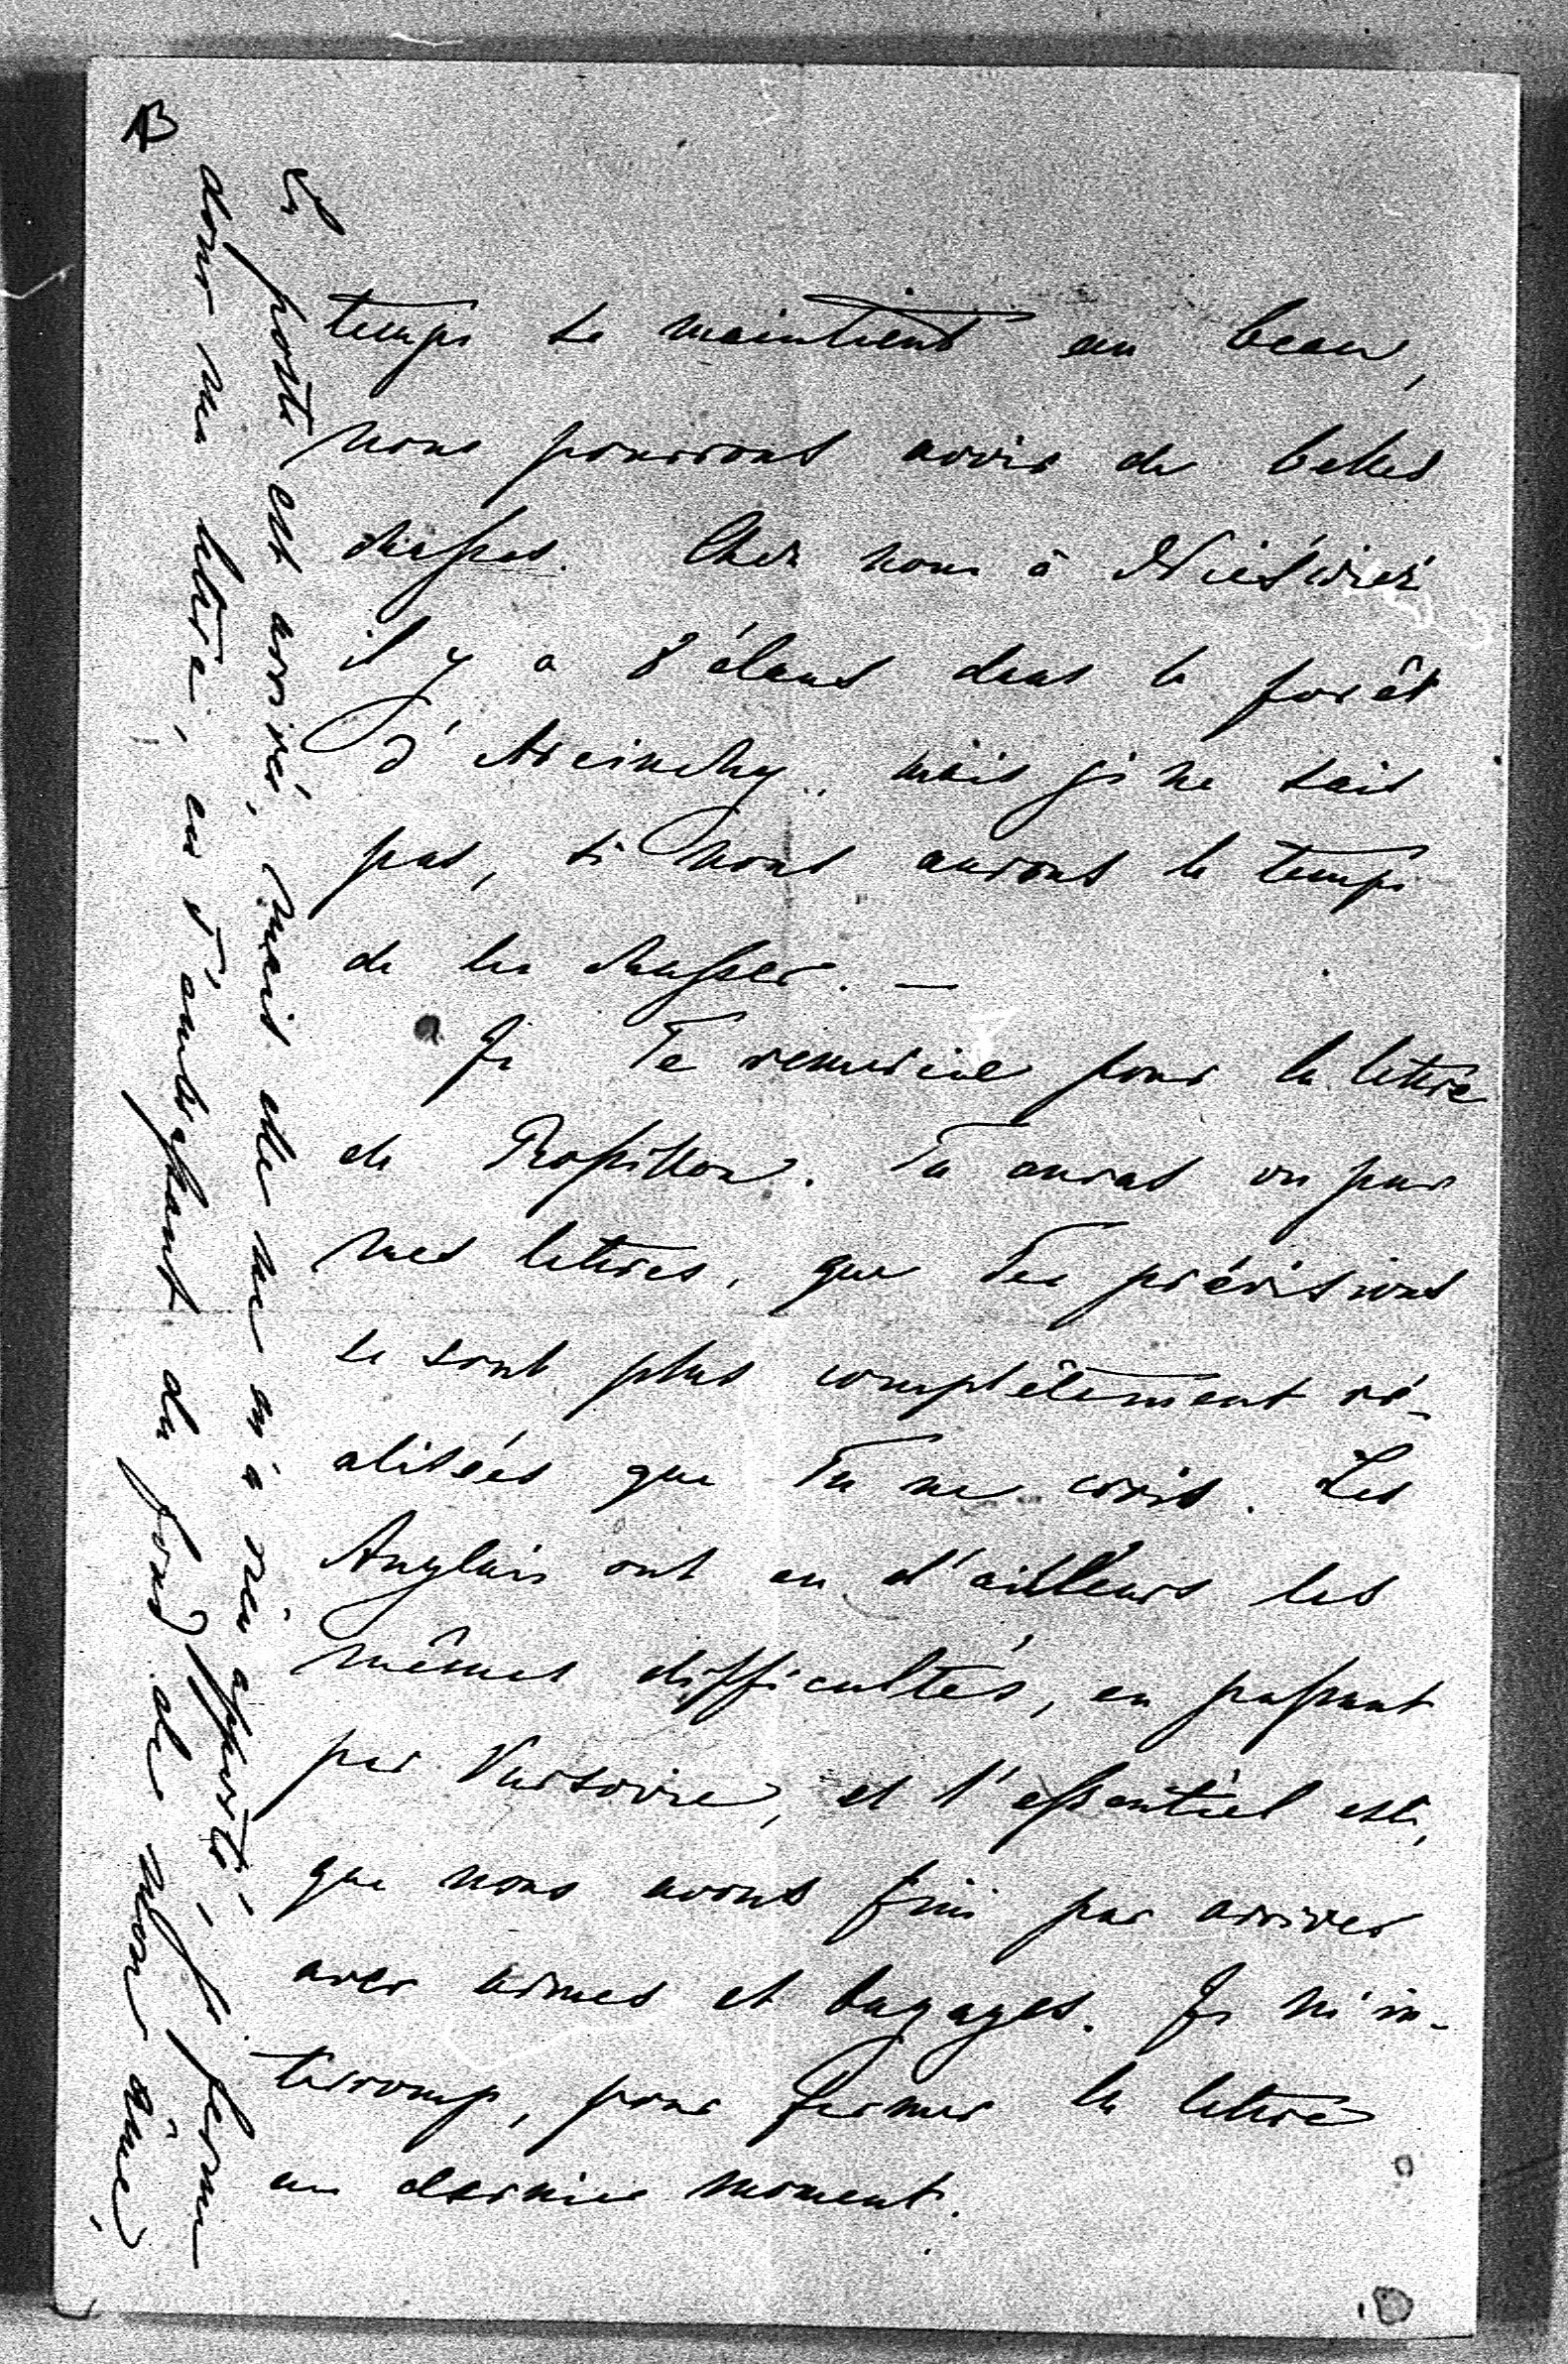 temps se maintient au beau,
nous pourrons avoir de belles
chasses. Chez nous à Nieśwież
il y a 8 élans dans la forêt
mais je ne sais
pas, si nous aurons le temps
de les chasser. —
Je Te remercie pour la lettre
de Tu auras vu par
mes lettres, que Tes prévisions
se sont plus complètement ré-
alisées que Tu ne crois. Les
Anglais ont eu d'ailleurs les
mêmes difficultés, en passant
par Varsovie, et l'essentiel est,
que nous avons fini par arriver
avec armes et bagages. Je m'in-
terromps, pour fermer la lettre
au dernier moment.
La poste est arrivé, mais elle ne m'a rien apporté, je ferme
donc ma lettre, en T'embrassant du fond de mon âme,